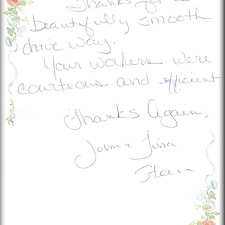 Thanks for a
beautifully smooth
drive way.
Your workers were
courteous and efficient
Thanks Again,